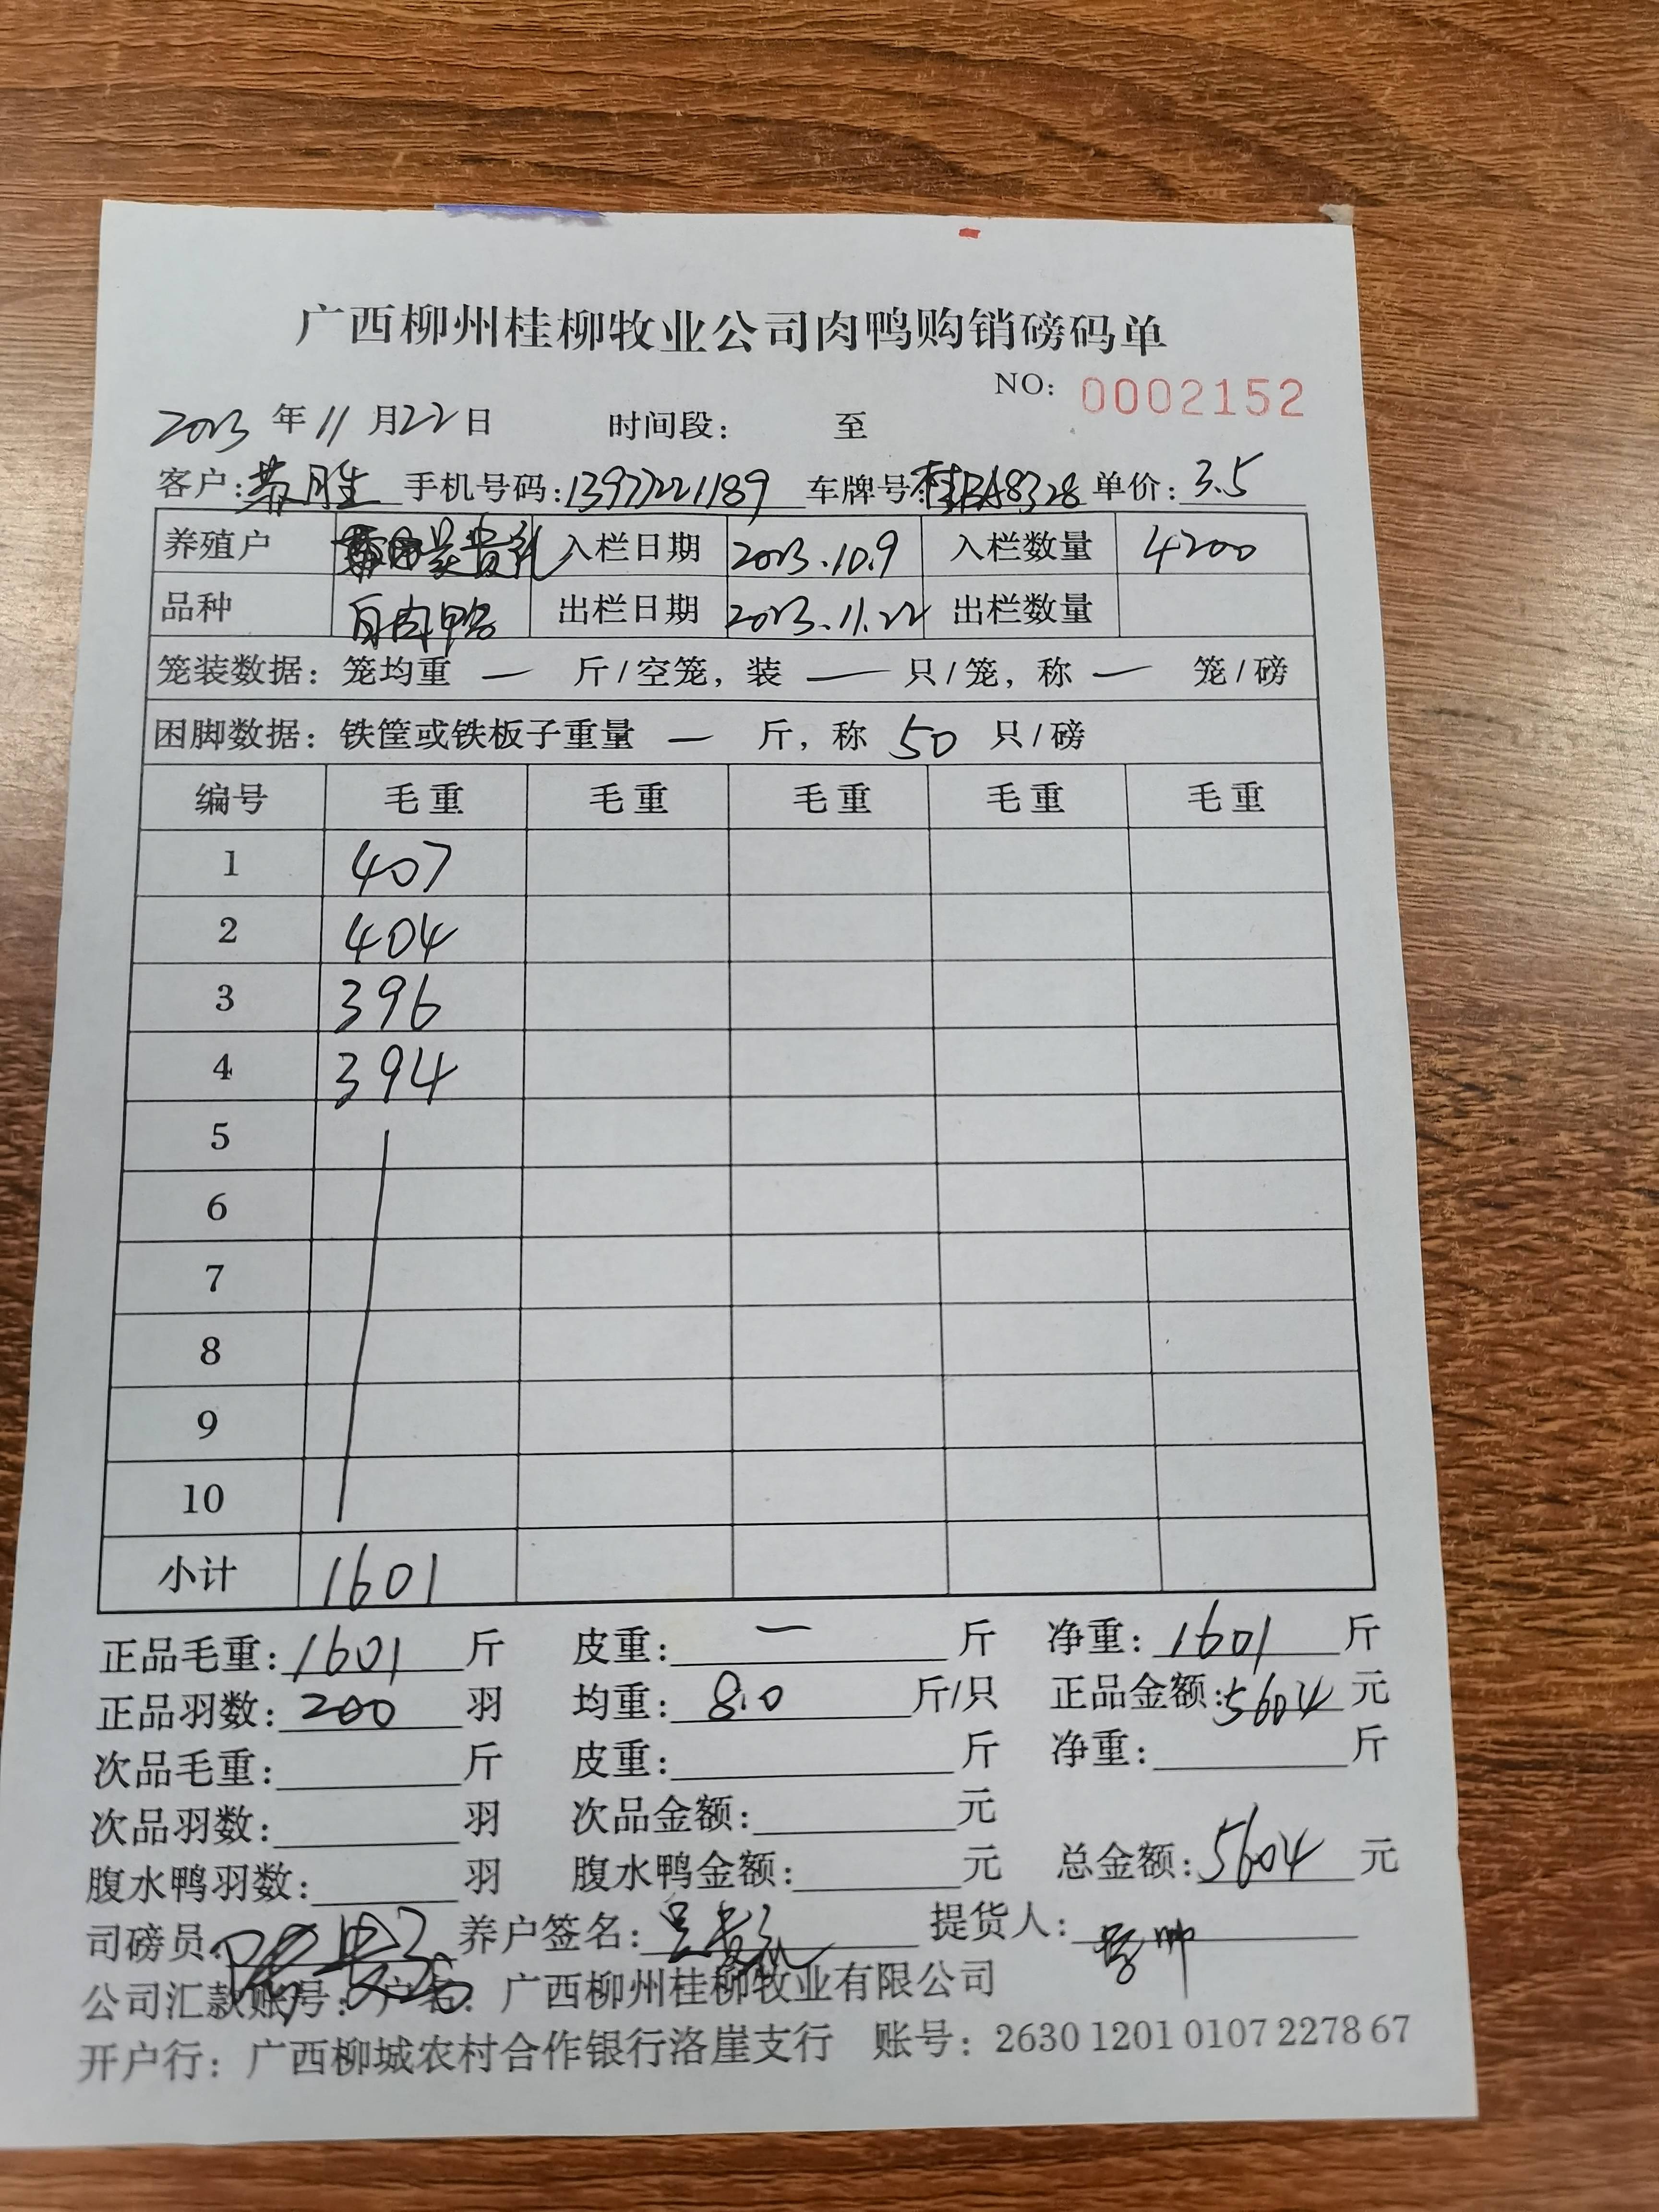 广西柳州桂柳牧业公司肉鸭购销磅码单
NO: 0002152
2023 年 11 月 22 日 时间段： 至
客户: 苏胜 手机号码: 13977221189 车牌号: 桂BA8328 单价: 3.5
养殖户 吴贵礼 入栏日期 2023.10.9 入栏数量 4200
品种 白肉鸭 出栏日期 2023.11.22 出栏数量
笼装数据：笼均重 — 斤/空笼，装 — 只/笼，称 — 笼/磅
困脚数据：铁筐或铁板子重量 — 斤，称 50 只/磅
编号 毛重 毛重 毛重 毛重 毛重
1 407
2 404
3 396
4 394
5
6
7
8
9
10
小计 1601
正品毛重: 1601 斤 皮重: — 斤 净重: 1601 斤
正品羽数: 200 羽 均重: 8.0 斤/只 正品金额: 5604 元
次品毛重: 斤 皮重: 斤 净重: 斤
次品羽数: 羽 次品金额: 元
腹水鸭羽数: 羽 腹水鸭金额: 元 总金额: 5604 元
司磅员: 养户签名: 吴贵礼 提货人:
公司汇款账号：户名：广西柳州桂柳牧业有限公司
开户行：广西柳城农村合作银行洛崖支行 账号：2630 1201 0107 2278 67